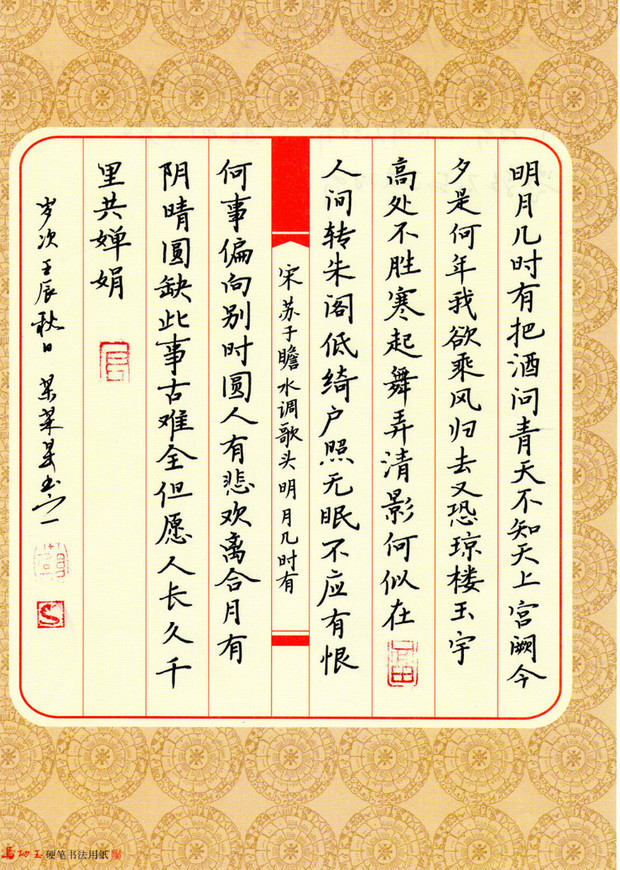 明月几时有把酒问青天不知天上宫阙今
夕是何年我欲乘风归去又恐琼楼玉宇
高处不胜寒起舞弄清影何似在
人间转朱阁低绮户照无眠不应有恨
宋苏子瞻水调歌头明月几时有
何事偏向别时圆人有悲欢离合月有
阴晴圆缺此事古难全但愿人长久千
里共婵娟
岁次壬辰秋日
硬笔书法用纸